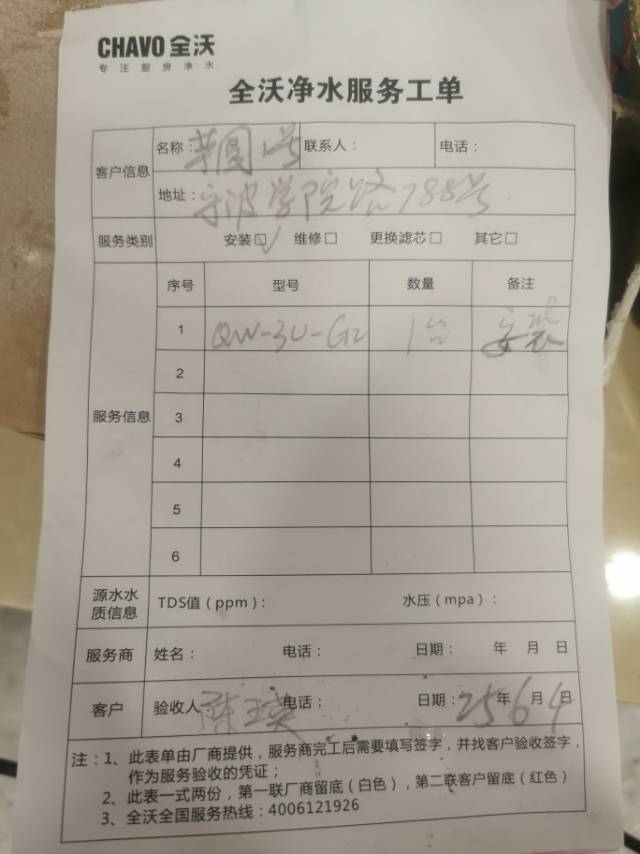 CHAVO 全沃
专注厨房净水
全沃净水服务工单
客户信息
名称：芋圆1号 联系人： 电话：
地址：宁波学院路788号
服务类别 安装☑ 维修□ 更换滤芯□ 其它□
服务信息
序号 型号 数量 备注
1 QW-3U-G2 1台 安装
2
3
4
5
6
源水水质信息 TDS值（ppm）： 水压（mpa）：
服务商 姓名： 电话： 日期： 年 月 日
客户 验收人 陈 电话： 日期：25年6月9日
注：1、此表单由厂商提供，服务商完工后需要填写签字，并找客户验收签字，
作为服务验收的凭证；
2、此表一式两份，第一联厂商留底（白色），第二联客户留底（红色）
3、全沃全国服务热线：4006121926